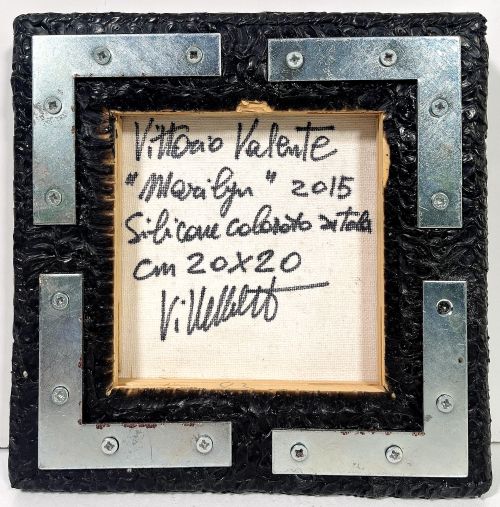 Vittorio Valente
"Marilyn" 2015
Silicone colorato su tela
cm 20x20